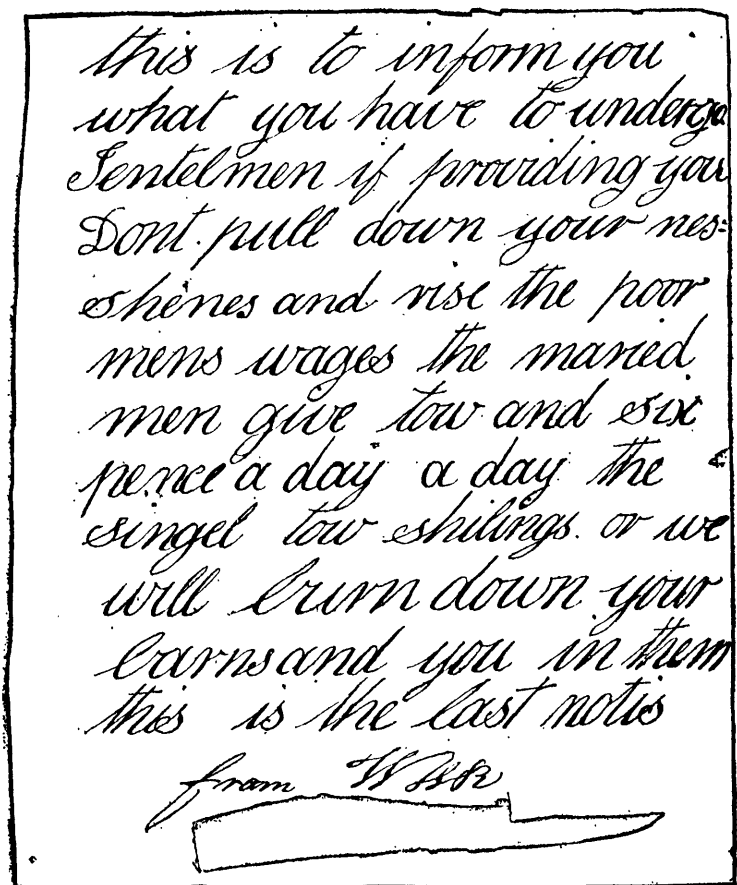 this is to inform you
what you have to undergo
Jentelmen if providing you
Dont pull down your nes=
shenes and rise the poor
mens wages the maried
men give tow and six
pence a day a day the
singel tow shilings. or we
will burn down your
barns and you in them
this is the last notis
from